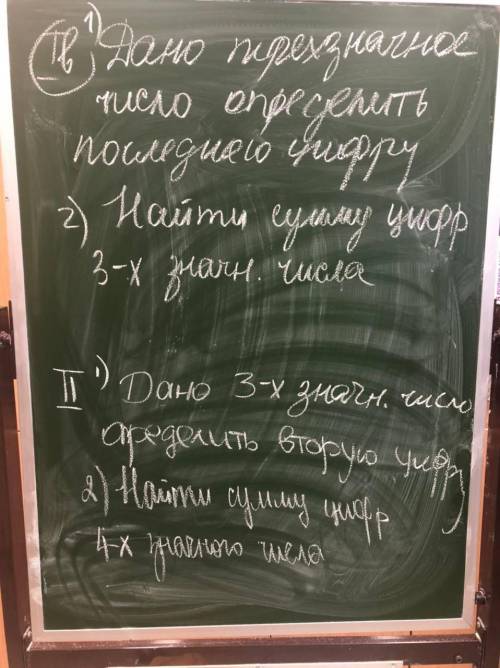 Iв 1) Дано трехзначное
число определить
последнюю цифру
2) Найти сумму цифр
3-х значн. числа
II 1) Дано 3-х значн. число
определить вторую цифру
2) Найти сумму цифр
4-х значного числа